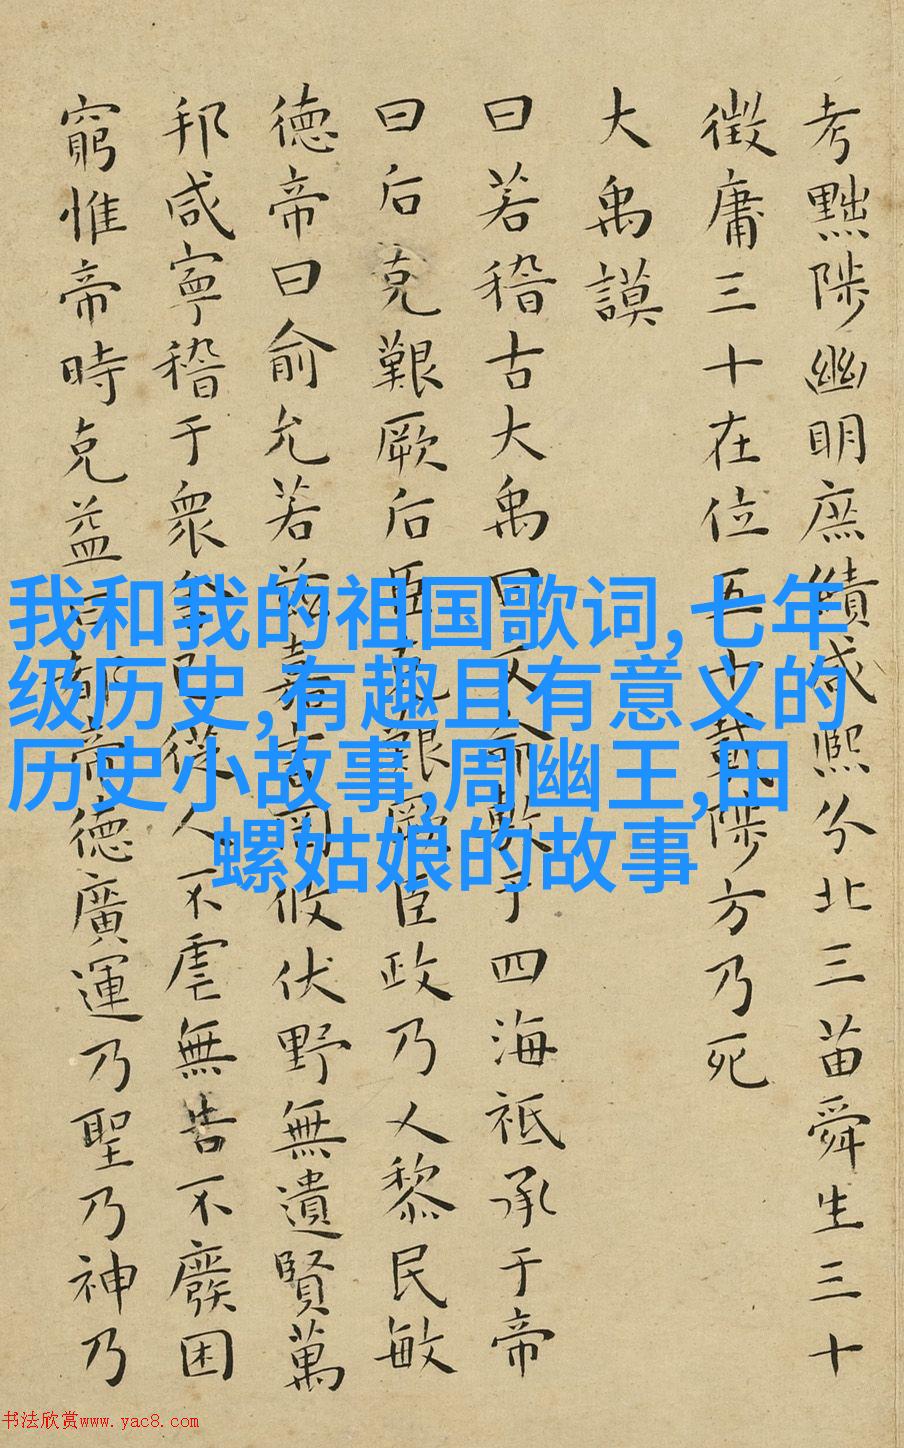 考黜陟幽明庶績咸熙分北三苗舜生三十
徵庸三十在位五十載陟方乃死
大禹謨
曰若稽古大禹曰文命敷于四海祗承于帝
曰后克艱厥后臣克艱厥臣政乃乂黎民敏
德帝曰俞允若茲嘉言罔攸伏野無遺賢萬
邦咸寧稽于衆舍己從人不虐無告不廢困
窮惟帝時克益曰都帝德廣運乃聖乃神乃
我和我的祖国歌词,七年
级历史,有趣且有意义的
历史小故事,周幽王,田
螺姑娘的故事
书法欣赏www.yac8.com